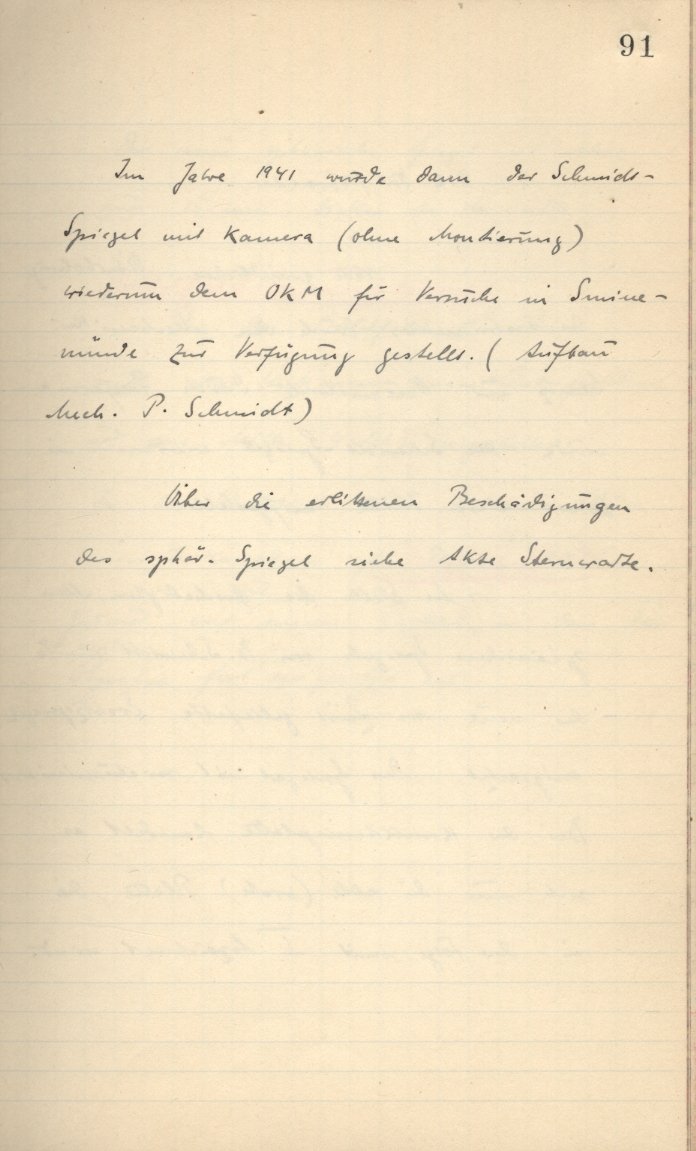 91
Im Jahre 1941 wurde dann der Schmidt-
Spiegel mit Kamera (ohne Montierung)
wiederum dem OKM für Versuche in Swine-
münde zur Verfügung gestellt. (Aufbau
Mech. P. Schmidt)
Über die erlittenen Beschädigungen
des sphär. Spiegel siehe Akte Sternwarte.